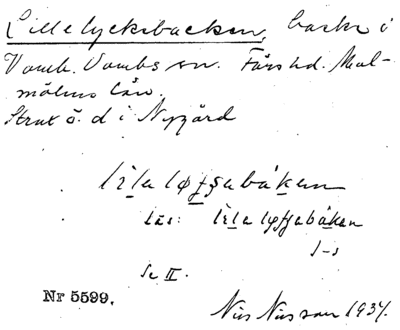 Lillelycksbacken, backe i
Vomb. Vombs sn. Färs hd. Mal-
möhus län.
Strax ö. d i Nygård
lịla løfsabákan
läs: lịla løfsabákan
s-s
Se II.
Nr 5599.
Nils Nilsson 1937.